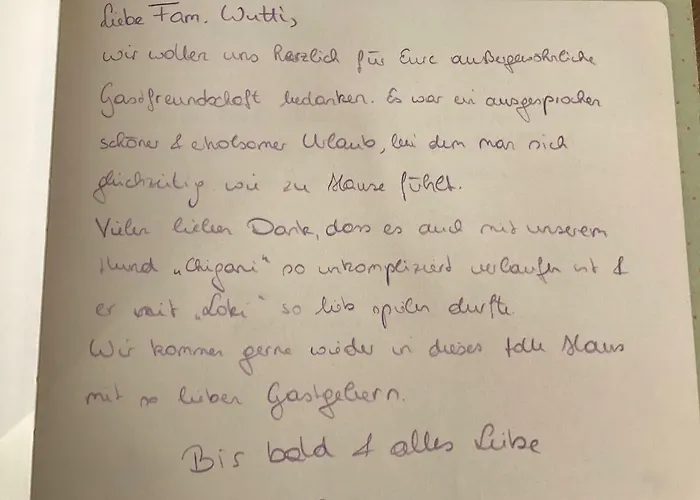 Liebe Fam. Wutti,
wir wollen uns herzlich für Eure außergewöhnliche
Gastfreundschaft bedanken. Es war ein ausgesprochen
schöner & erholsamer Urlaub, bei dem man sich
gleichzeitig wie zu Hause fühlt.
Vielen lieben Dank, dass es auch mit unserem
Hund „Chigani“ so unkompliziert verlaufen ist &
er mit „Loki“ so lieb spielen durfte.
Wir kommen gerne wieder in dieses tolle Haus
mit so lieben Gastgebern.
Bis bald & alles Liebe